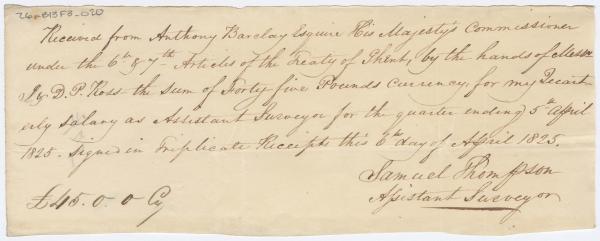 26-B13F3-020
Received from Anthony Barclay Esquire His Majesty's Commissioner
under the 6th & 7th Articles of the Treaty of Ghent, by the hands of Messrs
J & D. P. Ross the Sum of Forty five Pounds Currency, for my Quart-
erly Salary as Assistant Surveyor for the quarter ending 5th April
1825. Signed in Triplicate Receipts this 6th day of April 1825.
Samuel Thompson
Assistant Surveyor
£45.0.0 Cy